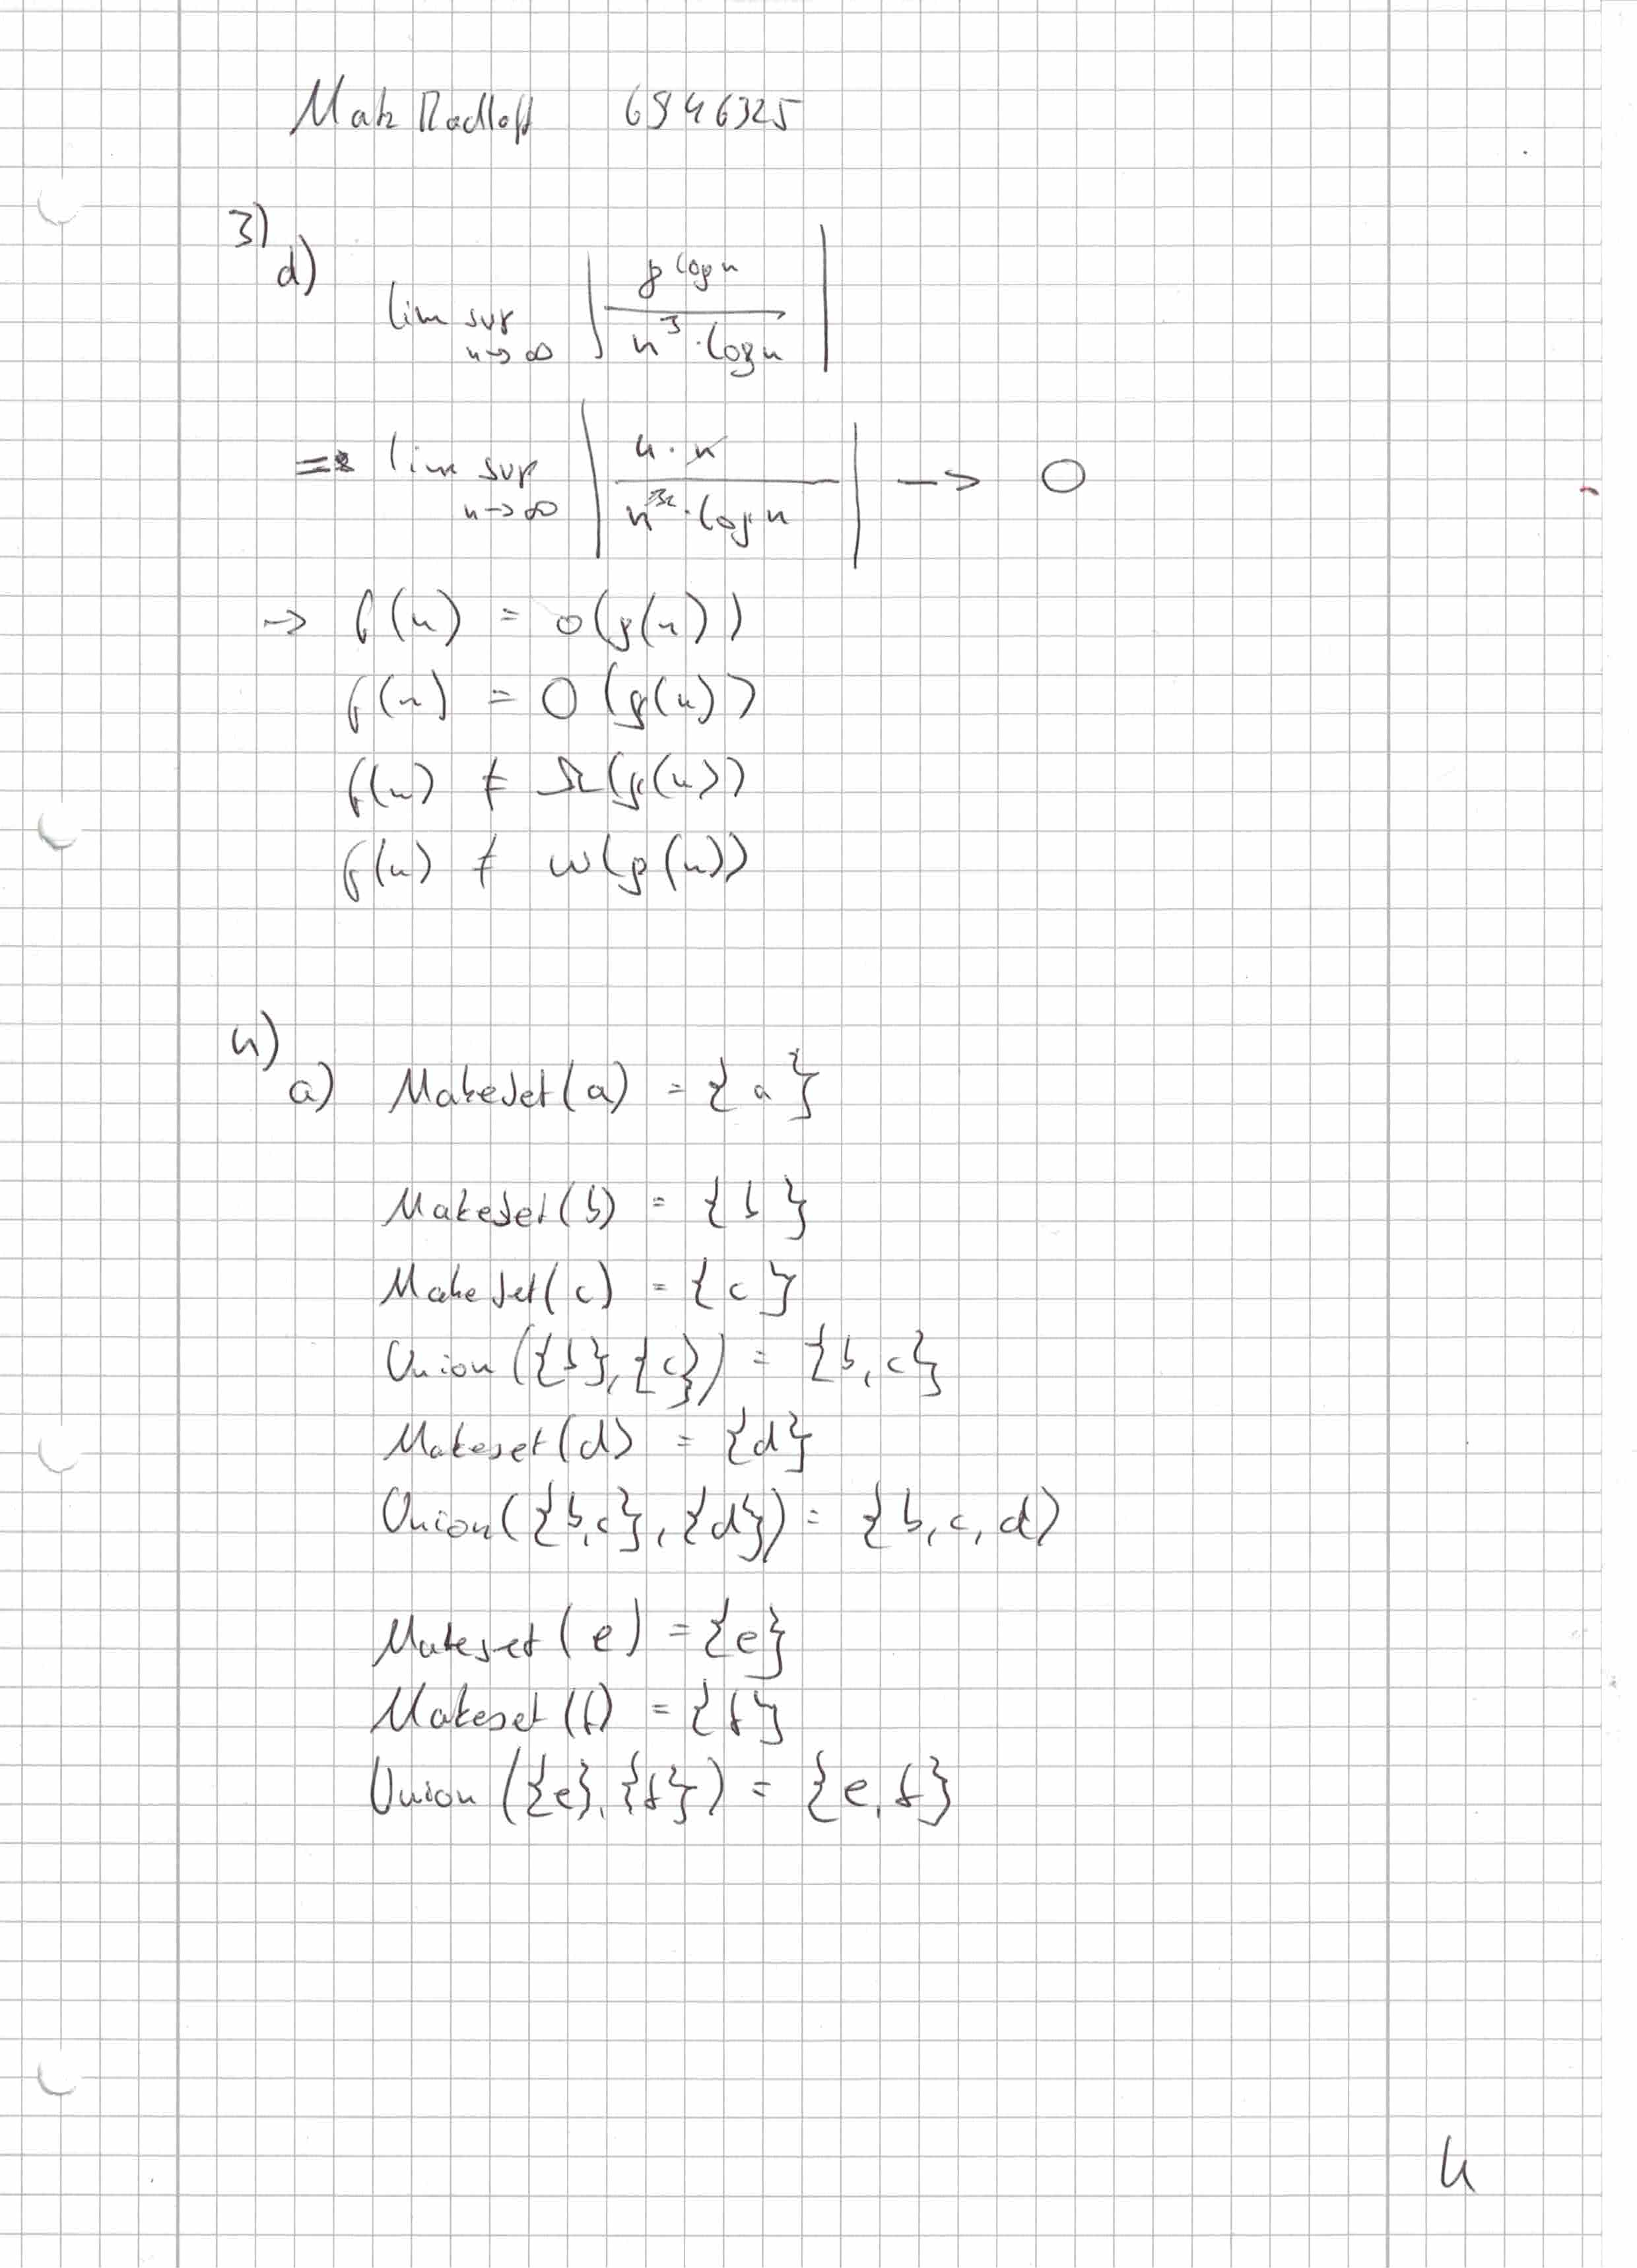 Matz Radloff 6946325
3)
d) lim sup n→∞ | 8^{log n} / n^3 · log n |
= lim sup n→∞ | 4 · n / n^{32} · log n | —> 0
→ f(n) = o(g(n))
f(n) = O(g(n))
f(n) ≠ Ω(g(n))
f(n) ≠ ω(g(n))
4)
a) MakeSet(a) = {a}
MakeSet(b) = {b}
MakeSet(c) = {c}
Union({b},{c}) = {b,c}
Makeset(d) = {d}
Union({b,c},{d}) = {b,c,d)
Makeset(e) = {e}
Makeset(f) = {f}
Union({e},{f}) = {e,f}
4